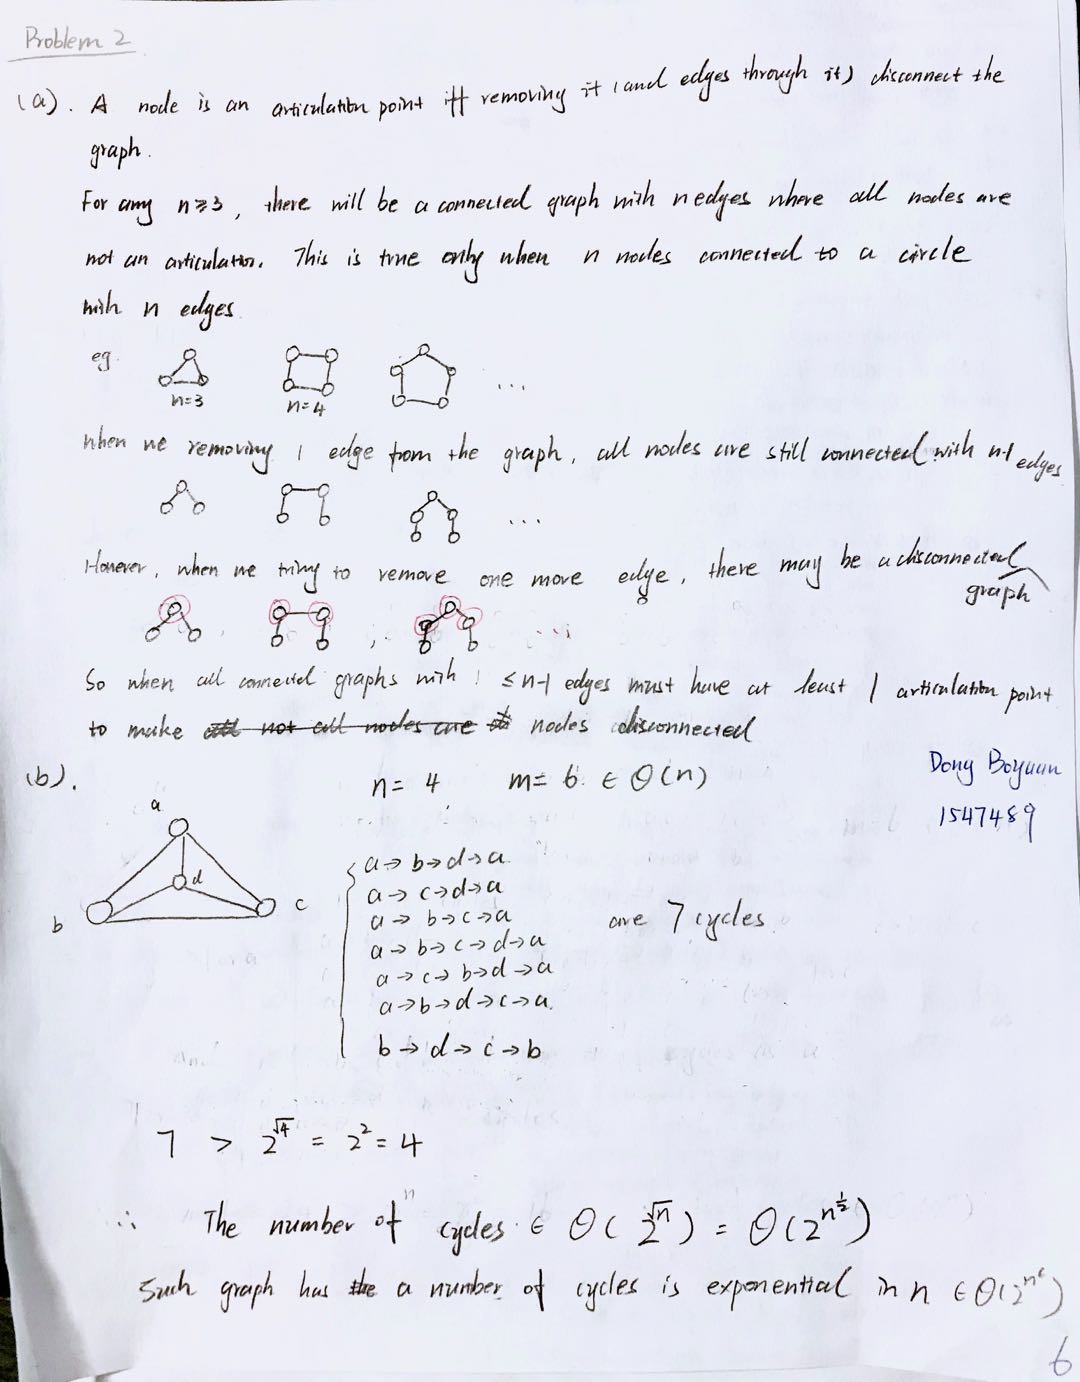 Problem 2
(a). A node is an articulation point iff removing it (and edges through it) disconnect the
graph.
For any n≥3, there will be a connected graph with n edges where all nodes are
not an articulation. This is true only when n nodes connected to a circle
with n edges.
eg.
n=3 n=4 ...
when we removing 1 edge from the graph, all nodes are still connected with n-1 edges
...
However, when we tring to remove one more edge, there may be a disconnected
graph
...
So when all connected graphs with ≤ n-1 edges must have at least 1 articulation point
to make nodes disconnected
Dong Boyuan
1547489
(b). n= 4 m= 6 ∈ Θ(n)
a
d
b
c
a→ b→d→a
a→ c→d→a
a→ b→c→a
a→ b→c→d→a
a→c→ b→d→a
a→b→d→c→a
b→ d→ c→b
are 7 cycles
7 > 2^√4 = 2^2 = 4
∴ The number of cycles ∈ Θ( 2^√n ) = Θ(2^n^½)
Such graph has a number of cycles is exponential in n ∈ Θ(2^n^c)
6